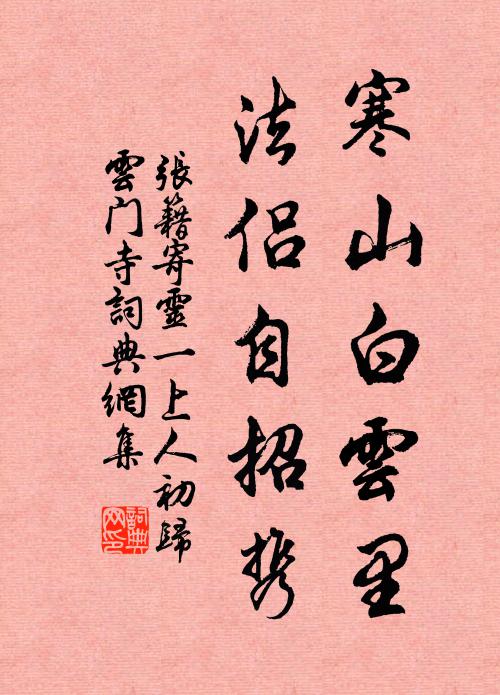 寒山白雲里
法侣自招携
張籍寄靈一上人初歸
雲门寺詞典網集
詞典网印